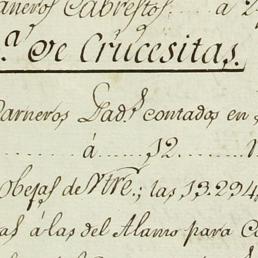 aneros Cabrestos.... a 2
.ª de Crucesitas.
Carneros Pad.s contados en
........ á ...... 12 ...... 1
obejas de Vtre.; las 13.294
as á las del Alamo para Ca